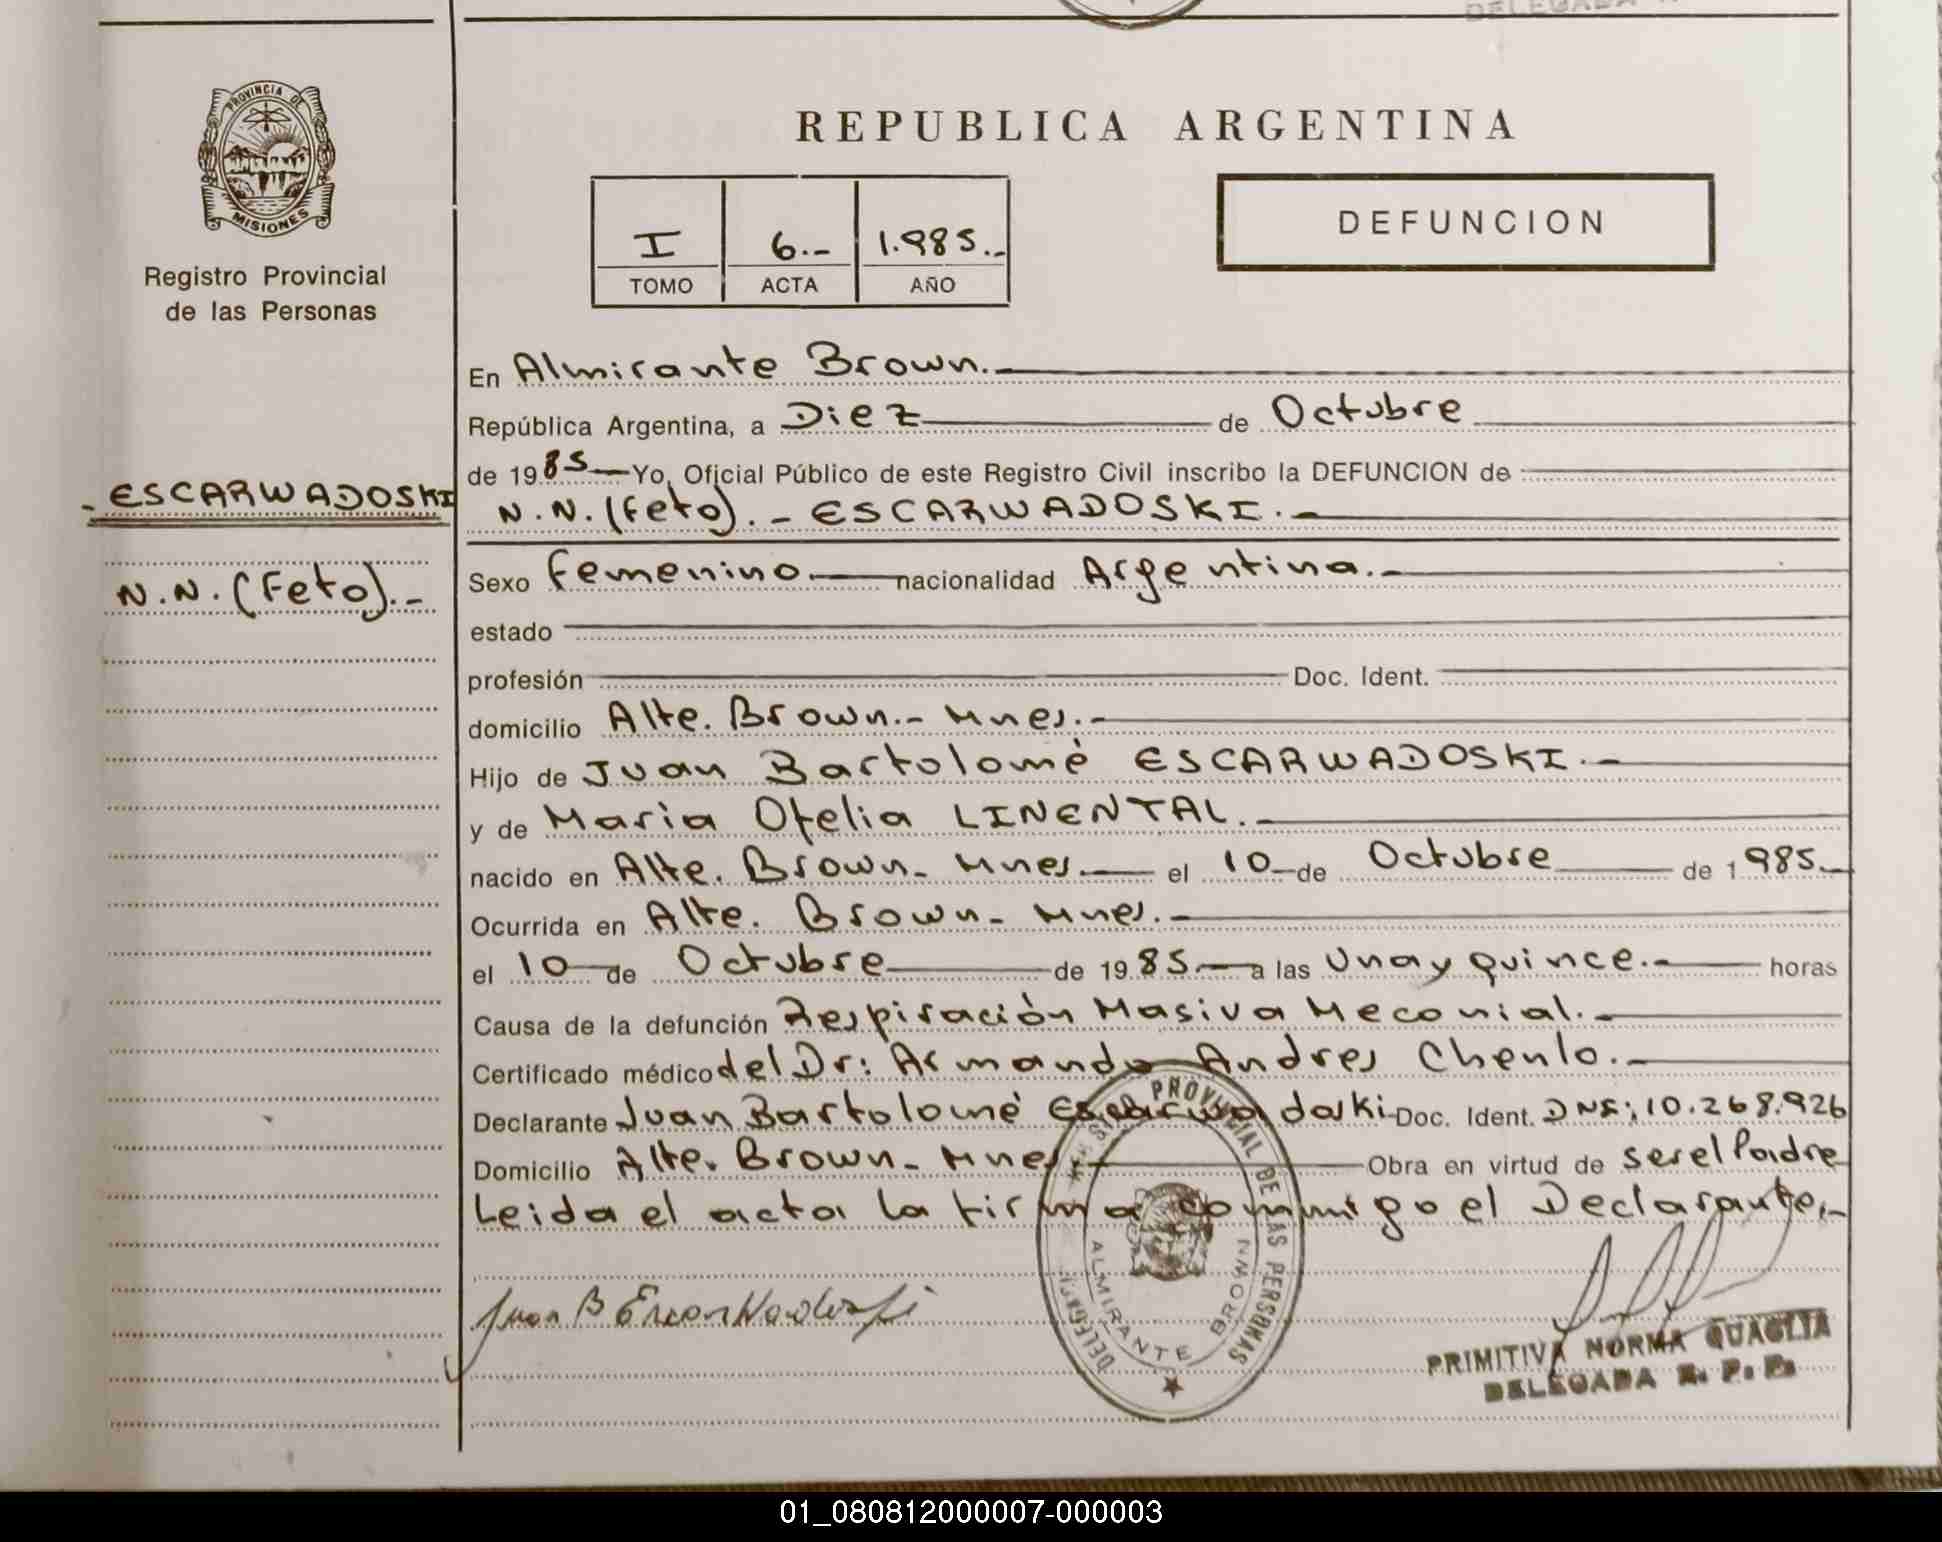 DELEGADA
PROVINCIA DE
MISIONES
Registro Provincial
de las Personas
- ESCARWADOSKI
N.N. (Feto).-
REPUBLICA ARGENTINA
I 6.- 1.985.-
TOMO ACTA AÑO
DEFUNCION
En Almirante Brown.-
República Argentina, a Diez de Octubre
de 1985 Yo, Oficial Público de este Registro Civil inscribo la DEFUNCION de
N.N. (Feto).- ESCARWADOSKI.-
Sexo Femenino.- nacionalidad Argentina.-
estado
profesión Doc. Ident.
domicilio Alte. Brown.- Mnes.-
Hijo de Juan Bartolomé ESCARWADOSKI.-
y de Maria Ofelia LINENTAL.-
nacido en Alte. Brown- Mnes.- el 10 de Octubre de 1985.-
Ocurrida en Alte. Brown- Mnes.-
el 10 de Octubre de 1985 a las Una y quince.- horas
Causa de la defunción Respiración Masiva Meconial.-
Certificado médico del Dr: Armando Andres Chenlo.-
Declarante Juan Bartolomé Escarwadoski Doc. Ident. DNI; 10.268.926
Domicilio Alte. Brown- Mnes Obra en virtud de ser el Padre
Leida el acta la firma conmigo el Declarante.-
Juan B Escarwadoski
REGISTRO PROVINCIAL DE LAS PERSONAS
DELEGACION
ALMIRANTE BROWN
PRIMITIVA NORMA QUAGLIA
DELEGADA R. P. P.
01_080812000007-000003